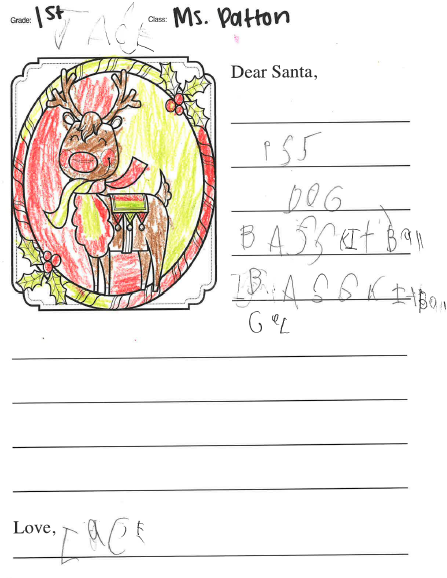 Grade: 1st Class: Ms. Patton
JACE
Dear Santa,
PS5
DOG
BASSKIt Ball
BASSKItBall
GOL
Love, JACE